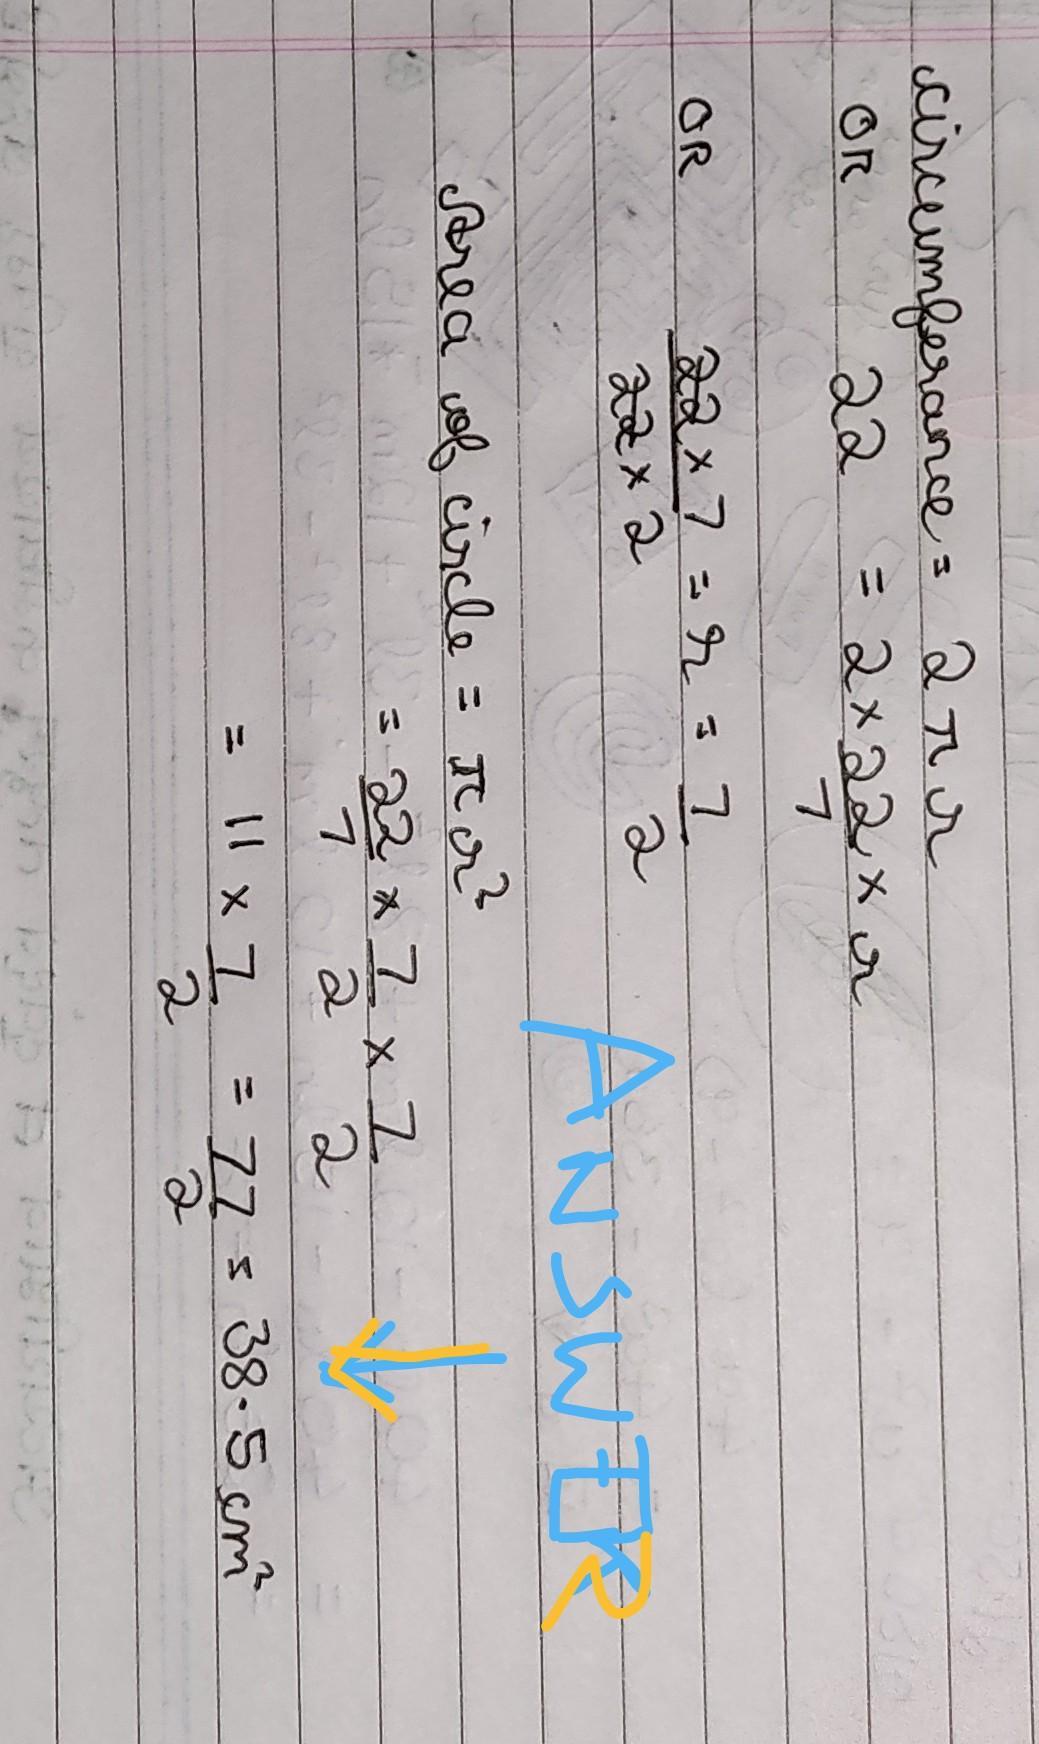 circumferance = 2πr
OR 22 = 2 × 22/7 × r
OR 22 × 7 / 22 × 2 = r = 7/2
ANSWER
Area of circle = πr²
= 22/7 × 7/2 × 7/2
= 11 × 7/2 = 77/2 = 38.5 cm²